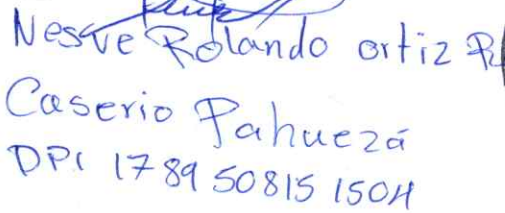 Nesve Rolando ortiz R
Caserio Pahuezá
DPI 1789 50815 1504